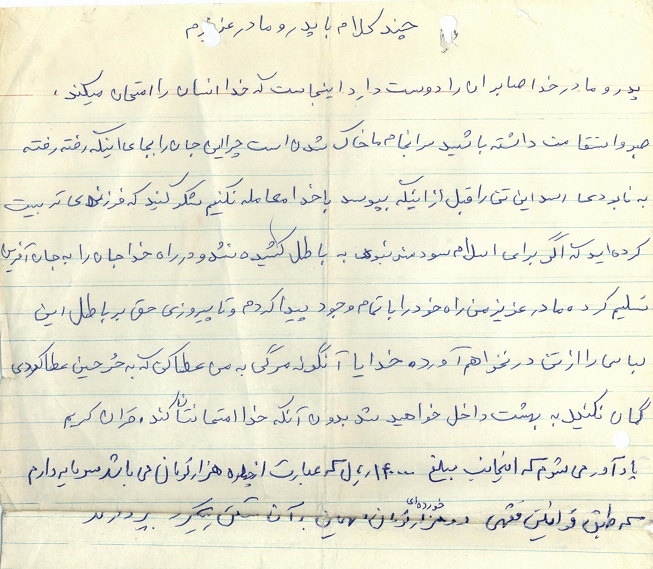 چند کلام با پدر و مادر عزیزم
پدر و مادر خدا صابران را دوست دارد اینجاست که خدا انسان را امتحان میکند .
صبر و استقامت داشته باشید سرانجام ما خاک شدن است چرا این جان را بجای اینکه رفته رفته
به نابودی اسد این تن را قبل از اینکه بپوسد با خدا معامله نکنیم شکر کنید که فرزندی تربیت
کرده اید که اگر برای اسلام سودمند نبود به باطل کشیده نشد و در راه خدا جان را به جان آفرین
تسلیم کرده مادر عزیز من راه خود را با تمام وجود پیدا کردم و تا پیروزی حق بر باطل این
لباس را از تن در نخواهم آورد خدایا آنگونه مرگی به من عطا کن که به حر حسین عطا کردی
گمان نکنید به بهشت داخل خواهید شد بدون آنکه خدا امتحانتان کند . قرآن کریم
یادآور می شوم که اینجانب مبلغ ۱۴۰۰۰۰ ریال که عبارت از چهارده هزار تومان می باشد سرمایه دارم
که طبق قوانین فقهی دو هزار تومان خورده‌ای خمس به آن تعلق